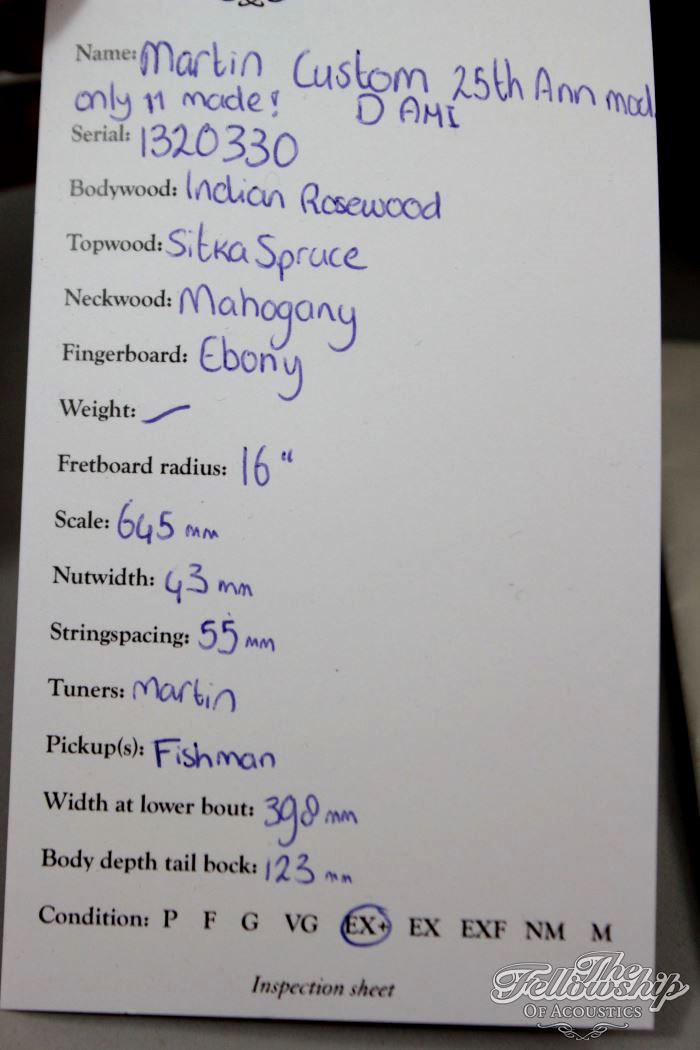 Name: Martin Custom 25th Ann mod.
only 11 made! D AMI
Serial: 1320330
Bodywood: Indian Rosewood
Topwood: Sitka Spruce
Neckwood: Mahogany
Fingerboard: Ebony
Weight: —
Fretboard radius: 16"
Scale: 645 mm
Nutwidth: 43 mm
Stringspacing: 55 mm
Tuners: Martin
Pickup(s): Fishman
Width at lower bout: 398 mm
Body depth tail bock: 123 mm
Condition: P F G VG EX+ EX EXF NM M
Inspection sheet
The
Fellowship
OF ACOUSTICS